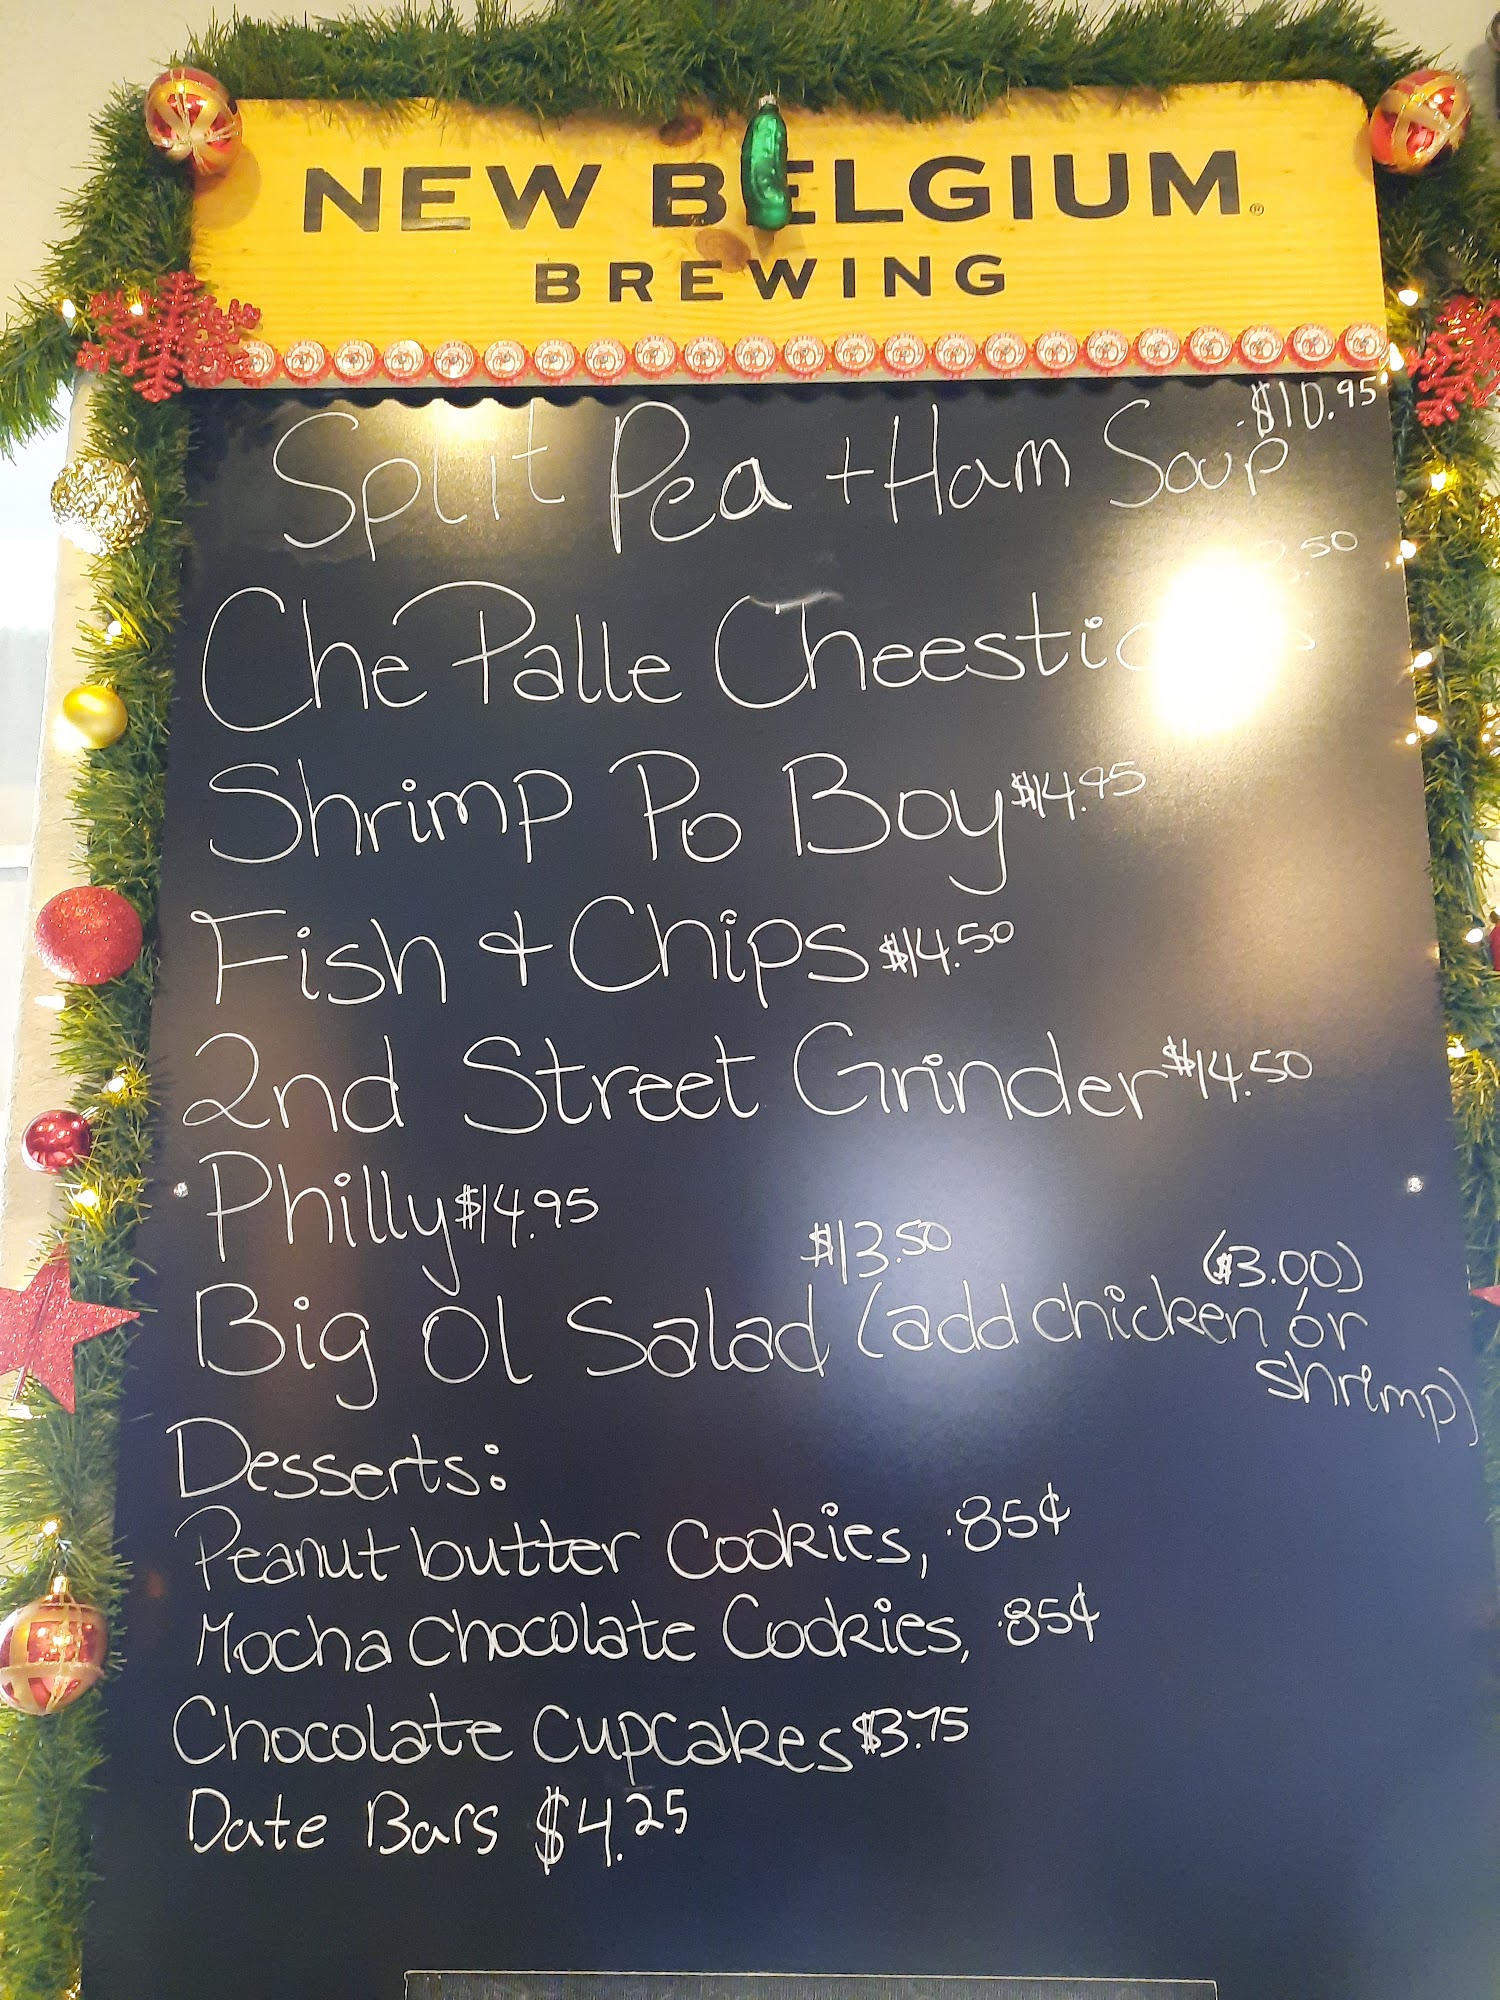 NEW BELGIUM®
BREWING
Split Pea + Ham Soup $10.95
Che Palle
Shrimp Po Boy $14.95
Fish + Chips $14.50
2nd Street Grinder $14.50
Philly $14.95
Big Ol Salad $13.50 (add chicken or ($3.00)
shrimp)
Desserts:
Peanut butter Cookies, .85¢
Mocha Chocolate Cookies, .85¢
Chocolate Cupcakes $3.75
Date Bars $4.25